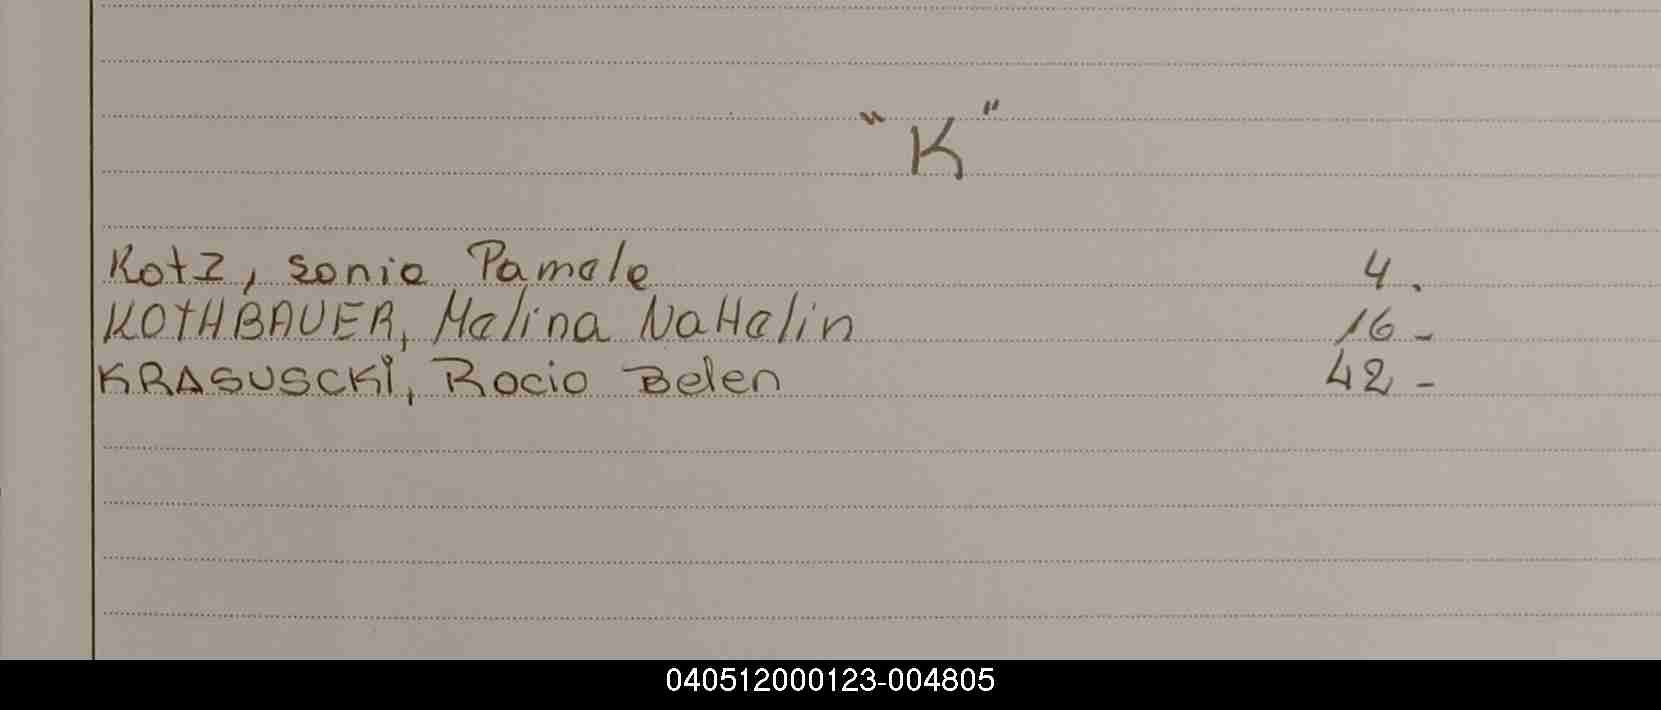 "K"
Kotz, Sonia Pamela 4.
KOTHBAUER, Malina Nathalin 16-
KRASUSCKI, Rocio Belen 42-
040512000123-004805